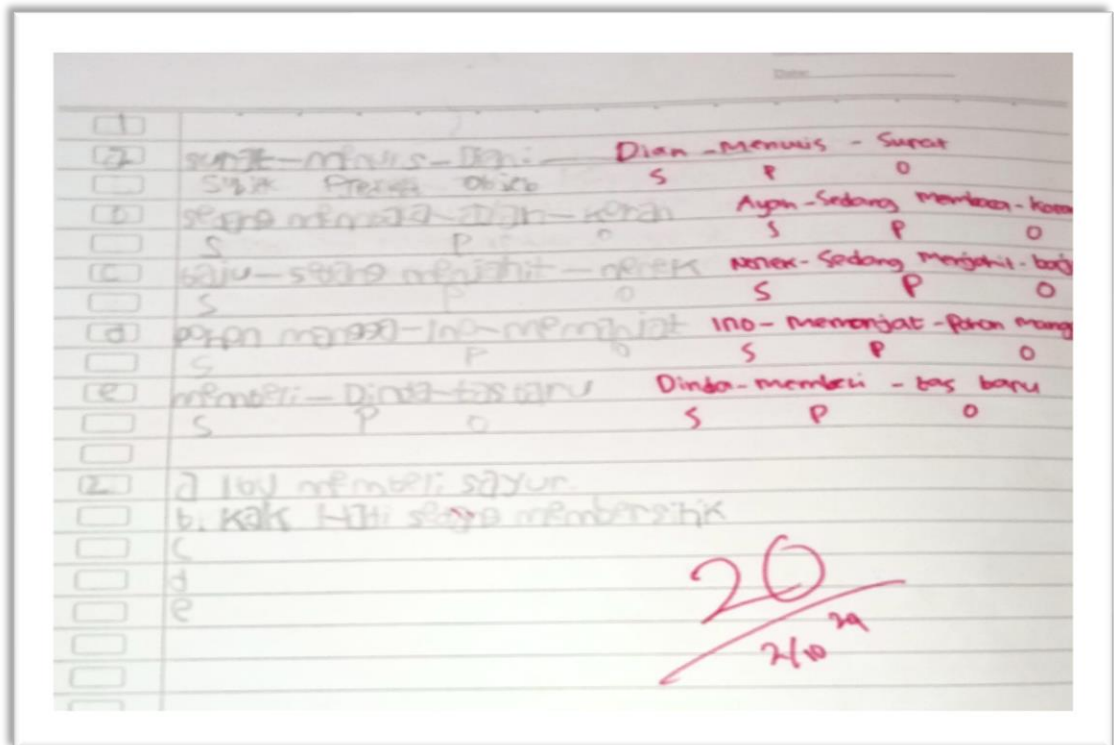 Date:
1
a surat-menulis-Dian Dian - Menulis - Surat
S P O
b Ayah - Sedang membaca - Koran
S P O S P O
c baju - sedang menjahit - nenek Nenek - Sedang Menjahit - baj
S P O S P O
d pohon mangga - Ino - memanjat Ino - Memanjat - Pohon mang
S P O S P O
e memberi - Dinda - tas baru Dinda - memberi - tas baru
S P O S P O
2 a Ibu memberi sayur.
b. Kak Hati sedang membersihk
c
d
e
20
2/10 24